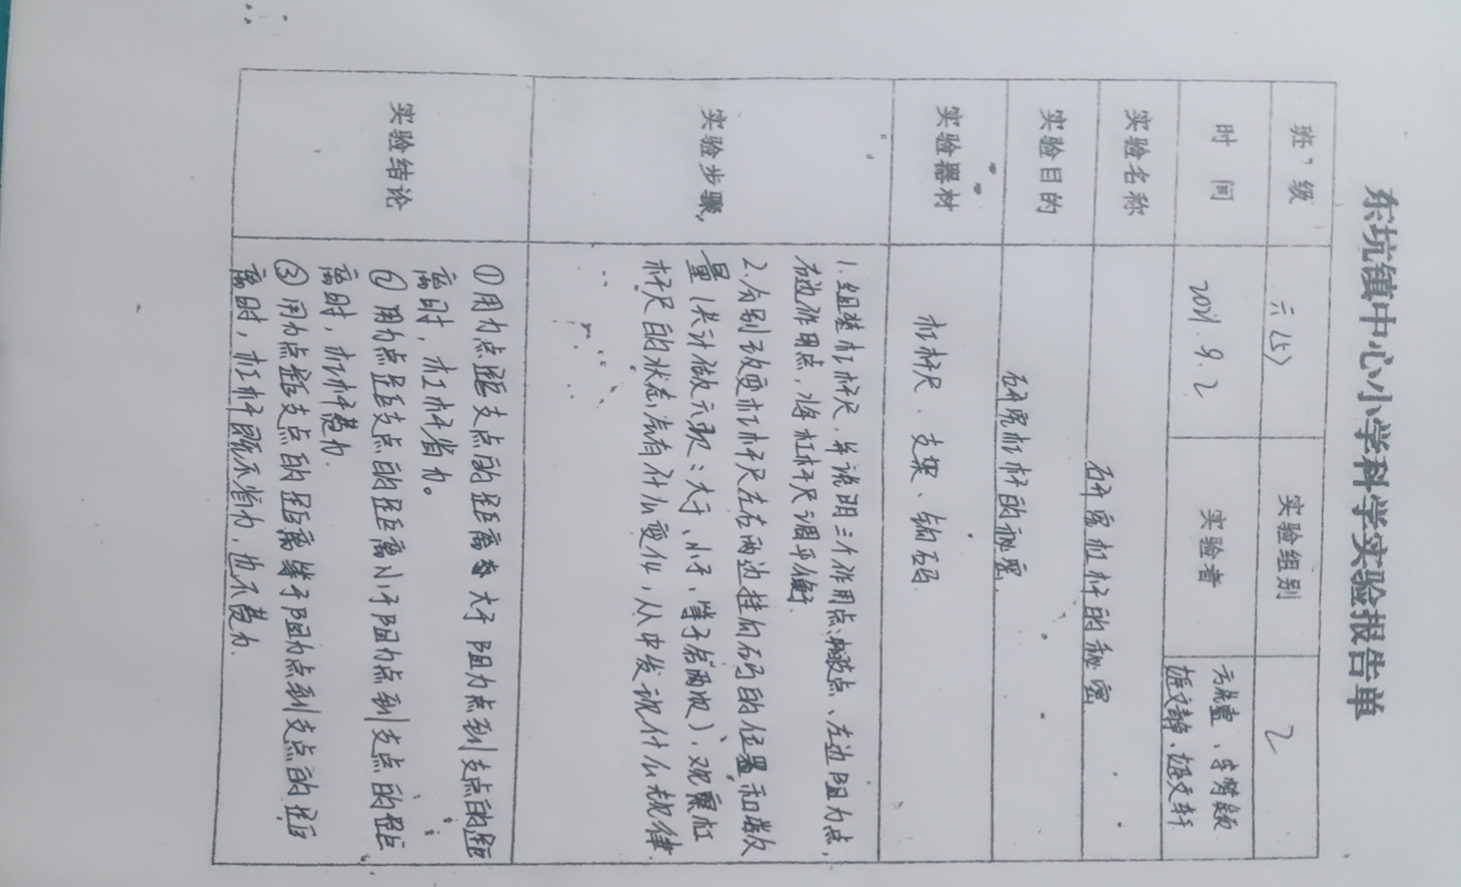 东坑镇中心小学科学实验报告单
班 级 六(5) 实验组别 2
时 间 2021.9.2 实验者
实验名称 研究杠杆的秘密
实验目的 研究杠杆的秘密
实验器材 杠杆尺、支架、钩码
实验步骤
1.组装杠杆尺,并说明三个作用点:支点、左边阻力点,
右边作用点,将杠杆尺调平衡.
2.分别改变杠杆尺左右两边挂钩码的位置和数
量(共计做六次:大于、小于、等于各两次),观察杠
杆尺的状态,含有什么变化,从中发现什么规律.
实验结论
①用力点距支点的距离大于阻力点到支点的距
离时,杠杆省力。
②用力点距支点的距离小于阻力点到支点的距
离时,杠杆费力.
③用力点距支点的距离等于阻力点到支点的距
离时,杠杆既不省力,也不费力.